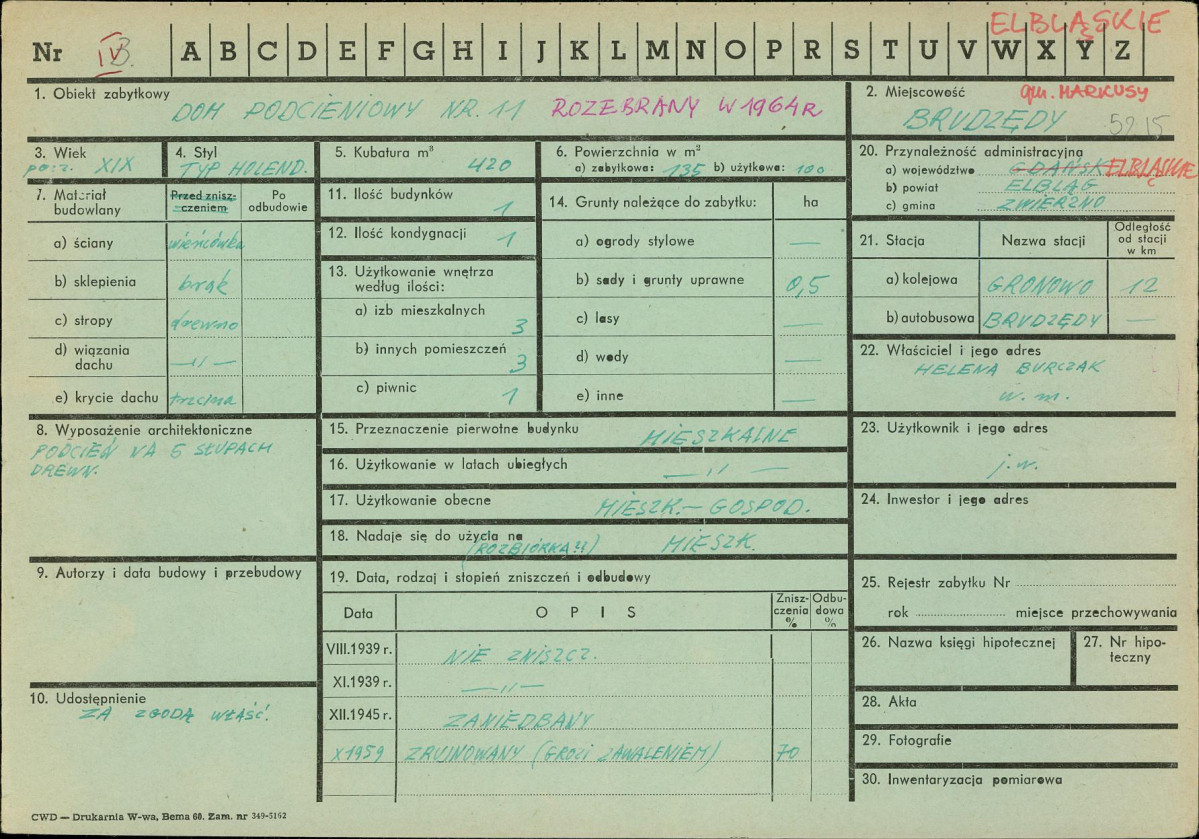 ELBLĄSKIE
Nr IV 3. A B C D E F G H I J K L M N O P R S T U V W X Y Z
1. Obiekt zabytkowy
DOM PODCIENIOWY NR. 11 ROZEBRANY W 1964 R
2. Miejscowość gm. MARKUSY
BRUDZĘDY 59.15
3. Wiek
pocz. XIX
4. Styl
TYP HOLEND.
5. Kubatura m³
420
6. Powierzchnia w m²
a) zabytkowa: 135 b) użytkowa: 100
20. Przynależność administracyjna
a) województwo GDAŃSK ELBLĄSKIE
b) powiat ELBLĄG
c) gmina ZWIERZNO
7. Materiał budowlany
Przed zniszczeniem
Po odbudowie
a) ściany wieńcówka
b) sklepienia brak
c) stropy drewno
d) wiązania dachu —〃—
e) krycie dachu trzcina
11. Ilość budynków 1
12. Ilość kondygnacji 1
13. Użytkowanie wnętrza
według ilości:
a) izb mieszkalnych 3
b) innych pomieszczeń 3
c) piwnic 1
14. Grunty należące do zabytku: ha
a) ogrody stylowe —
b) sady i grunty uprawne 0,5
c) lasy —
d) wody —
e) inne —
21. Stacja Nazwa stacji Odległość od stacji w km
a) kolejowa GRONOWO 12
b) autobusowa BRUDZĘDY —
22. Właściciel i jego adres
HELENA BURCZAK
w. m.
8. Wyposażenie architektoniczne
PODCIEŃ NA 5 SŁUPACH
DREWN.
15. Przeznaczenie pierwotne budynku MIESZKALNE
16. Użytkowanie w latach ubiegłych —〃—
17. Użytkowanie obecne MIESZK. — GOSPOD.
18. Nadaje się do użycia na MIESZK.
(ROZBIÓRKA?!)
23. Użytkownik i jego adres
j.w.
24. Inwestor i jego adres
9. Autorzy i data budowy i przebudowy
19. Data, rodzaj i stopień zniszczeń i odbudowy
Data OPIS Zniszczenia % Odbudowa %
VIII.1939 r. NIE ZNISZCZ.
XI.1939 r. —〃—
XII.1945 r. ZANIEDBANY
X 1959 ZRUJNOWANY (GROZI ZAWALENIEM) 70
25. Rejestr zabytku Nr
rok miejsce przechowywania
26. Nazwa księgi hipotecznej
27. Nr hipoteczny
10. Udostępnienie
ZA ZGODĄ WŁAŚĆ.
28. Akta
29. Fotografie
30. Inwentaryzacja pomiarowa
CWD — Drukarnia W-wa, Bema 60. Zam. nr 349-5162